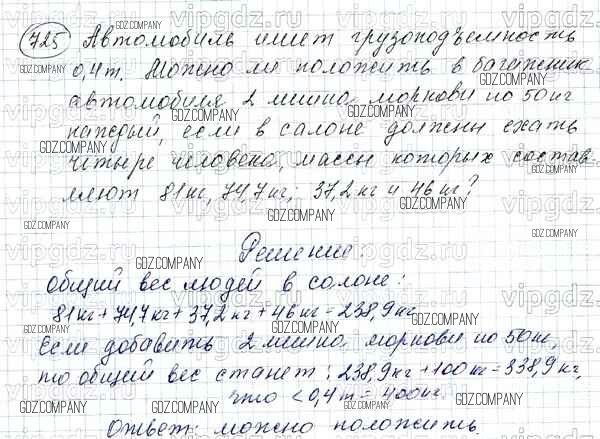 725 Автомобиль имеет грузоподъемность
0,4т. Можно ли положить в багажник
автомобиля 2 мешка моркови по 50кг
каждый, если в салоне должны ехать
четыре человека, массы которых состав-
ляют 81кг, 74,7кг; 37,2кг и 46кг?
Решение:
Общий вес людей в салоне:
81кг+74,7кг+37,2кг+46кг=238,9кг
Если добавить 2 мешка моркови по 50кг,
то общий вес станет: 238,9кг+100кг=338,9кг,
что <0,4т=400кг.
Ответ: можно положить.